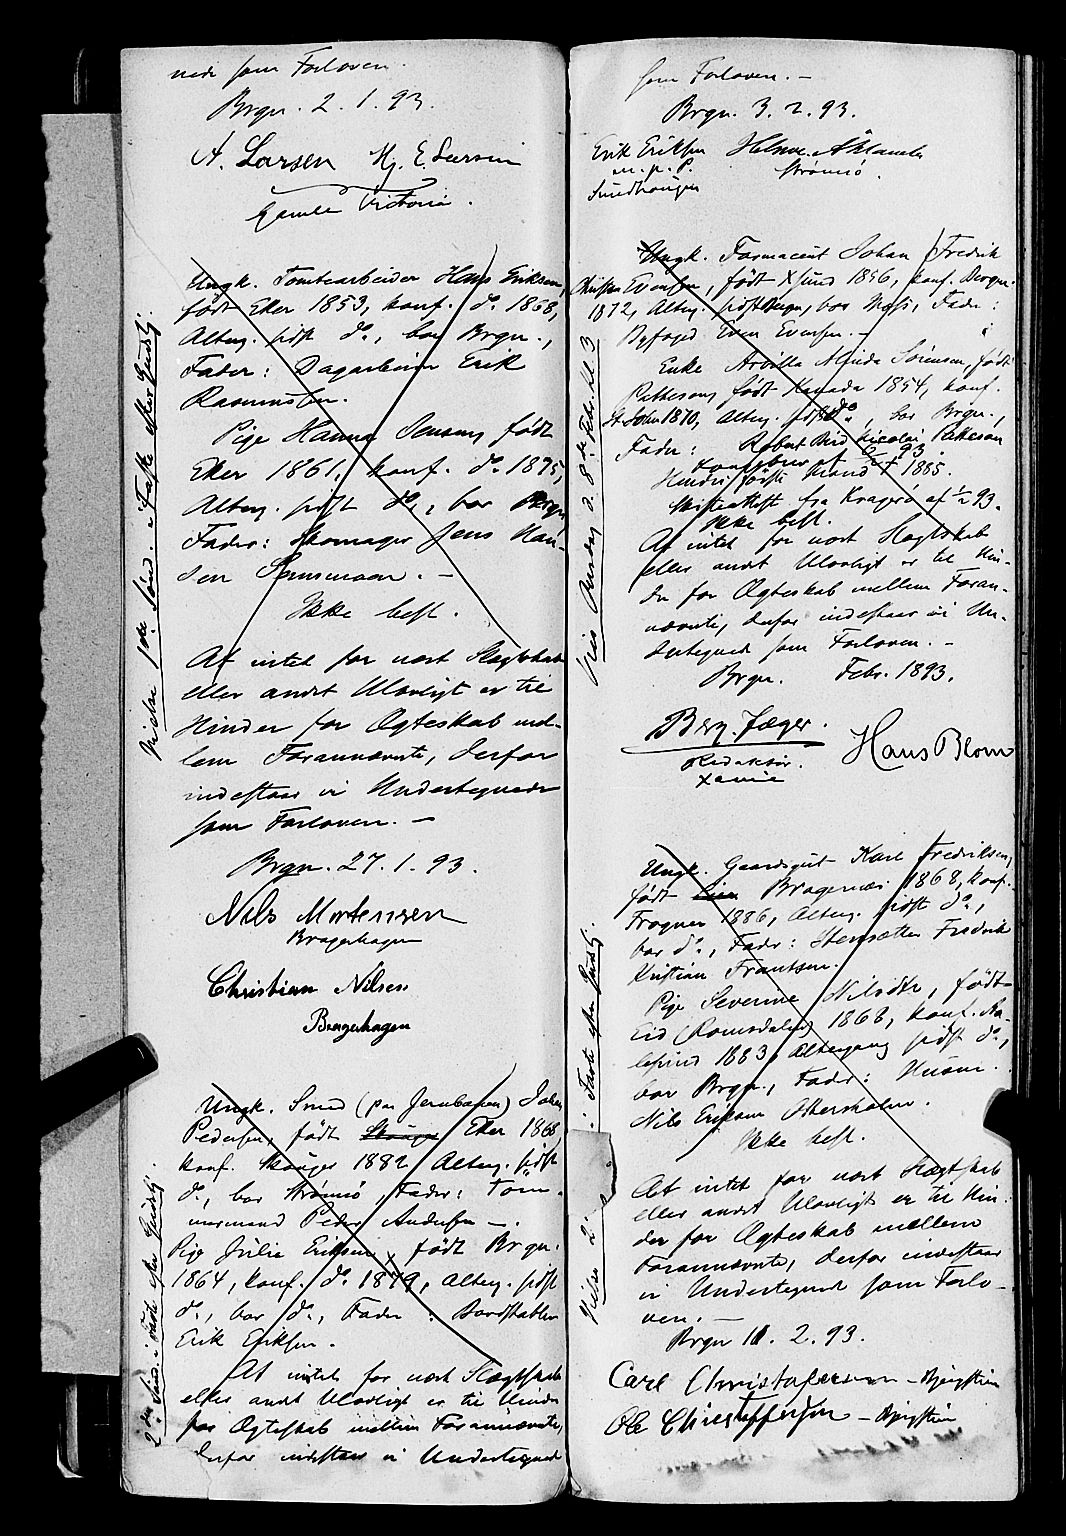 nede som Forlovere.
Brgn. 2.1.93.
A. Larsen Hj. E. Larsen
Gamle Victoria.
Ungk. Tomtearbeider Hans Eriksen,
født Eker 1853, konf. do. 1868,
Alterg. sidst do., bor Brgn.,
Fader: Dagarbeider Erik
Rasmussen.
Pige Hanna Jensen, født
Eker 1861, konf. do. 1875,
Alterg. sidst do., bor Brgn.
Fader: Skomager Jens Han-
sen
Ikke besl.
At intet for vort Slægtskab
eller andet Ulovligt er til
Hinder for Ægteskab mel-
lem Forannævnte, derfor
indestaar vi Undertegnede
som Forlovere. —
Brgn. 27.1.93.
Nils Mortensen
Bragerhagen
Christian Nilsen
Bragerhagen
Vielse 1ste Sønd. i Faste efter Gudstj.
Ungk. Smed (paa Jernbanen) Johan
Pedersen, født Skouger Eker 1868,
konf. Skouger 1882, Alterg. sidst
do., bor Strømsø, Fader: Töm-
mermand Peder Andersen —.
Pige Julie Eriksen, født Brgn.
1864, konf. do. 1879, Alterg. sidst
do., bor do., Fader:
Erik Eriksen.
At intet for vort Slægtskab
eller andet Ulovligt er til Hinder
for Ægteskab mellem Forannævnte,
derfor indestaar vi Undertegnede
2den Sønd. i Faste efter Gudstj.
som Forlovere. —
Brgn. 3.2.93.
Erik Eriksen
m. p. P.
Smedhaugen
Strømsø.
Ungk. Farmaceut Johan Fredrik
Christian Evensen, født Xsund 1856, konf. Bergen
1872, Alterg. sidst Bergen, bor Moss, Fader:
Byfoged Even Evensen. —
Enke Arvilla Almida Sörensen, født
Patteson, født Kanada 1854, konf.
St. John 1870, Alterg. sidst do., bor Brgn.,
Fader: Robert Bird Nicolai Patteson
Hendes første Mand † 1885.
Skifteattest fra Kragerø af 1/2 93.
Ikke besl.
At intet for vort Slægtskab
eller andet Ulovligt er til Hin-
der for Ægteskab mellem Foran-
nævnte, derfor indestaar vi Un-
dertegnede som Forlovere. —
Brgn. Febr. 1893.
Berg. Jæger.
Redaktör.
Hans Blom
Vies Onsdag d. 8de Febr. kl. 3
Ungk. Gaardsgut Karl Fredriksen,
født Bragernæs 1868, konf.
Frogner 1886, Alterg. sidst do.,
bor do., Fader: Stensætter Fredrik
Kristian Frantsen.
Pige Severine Nilsdtr, født
Eid (Romsdalen) 1868, konf. Aa-
lesund 1883, Altergang sidst do.,
bor Brgn., Fader: Husm.
Nils Eriksen Ottersholm.
Ikke besl.
At intet for vort Slægtskab
eller andet Ulovligt er til Hin-
der for Ægteskab mellem
Forannævnte, derfor indestaar
vi Undertegnede som Forlo-
vere. —
Brgn 11.2.93.
Carl Christofersen —
Ole Christoffersen —
Vielse 2 i Faste efter Gudstj.